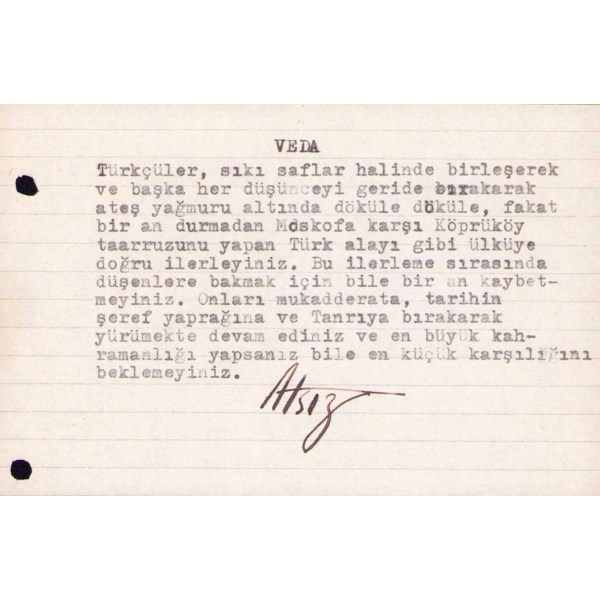 VEDA
Türkçüler, sıkı saflar halinde birleşerek
ve başka her düşünceyi geride bırakarak
ateş yağmuru altında döküle döküle, fakat
bir an durmadan Moskofa karşı Köprüköy
taarruzunu yapan Türk alayı gibi ülküye
doğru ilerleyiniz. Bu ilerleme sırasında
düşenlere bakmak için bile bir an kaybet-
meyiniz. Onları mukadderata, tarihin
şeref yaprağına ve Tanrıya bırakarak
yürümekte devam ediniz ve en büyük kah-
ramanlığı yapsanız bile en küçük karşılığını
beklemeyiniz.
Atsız